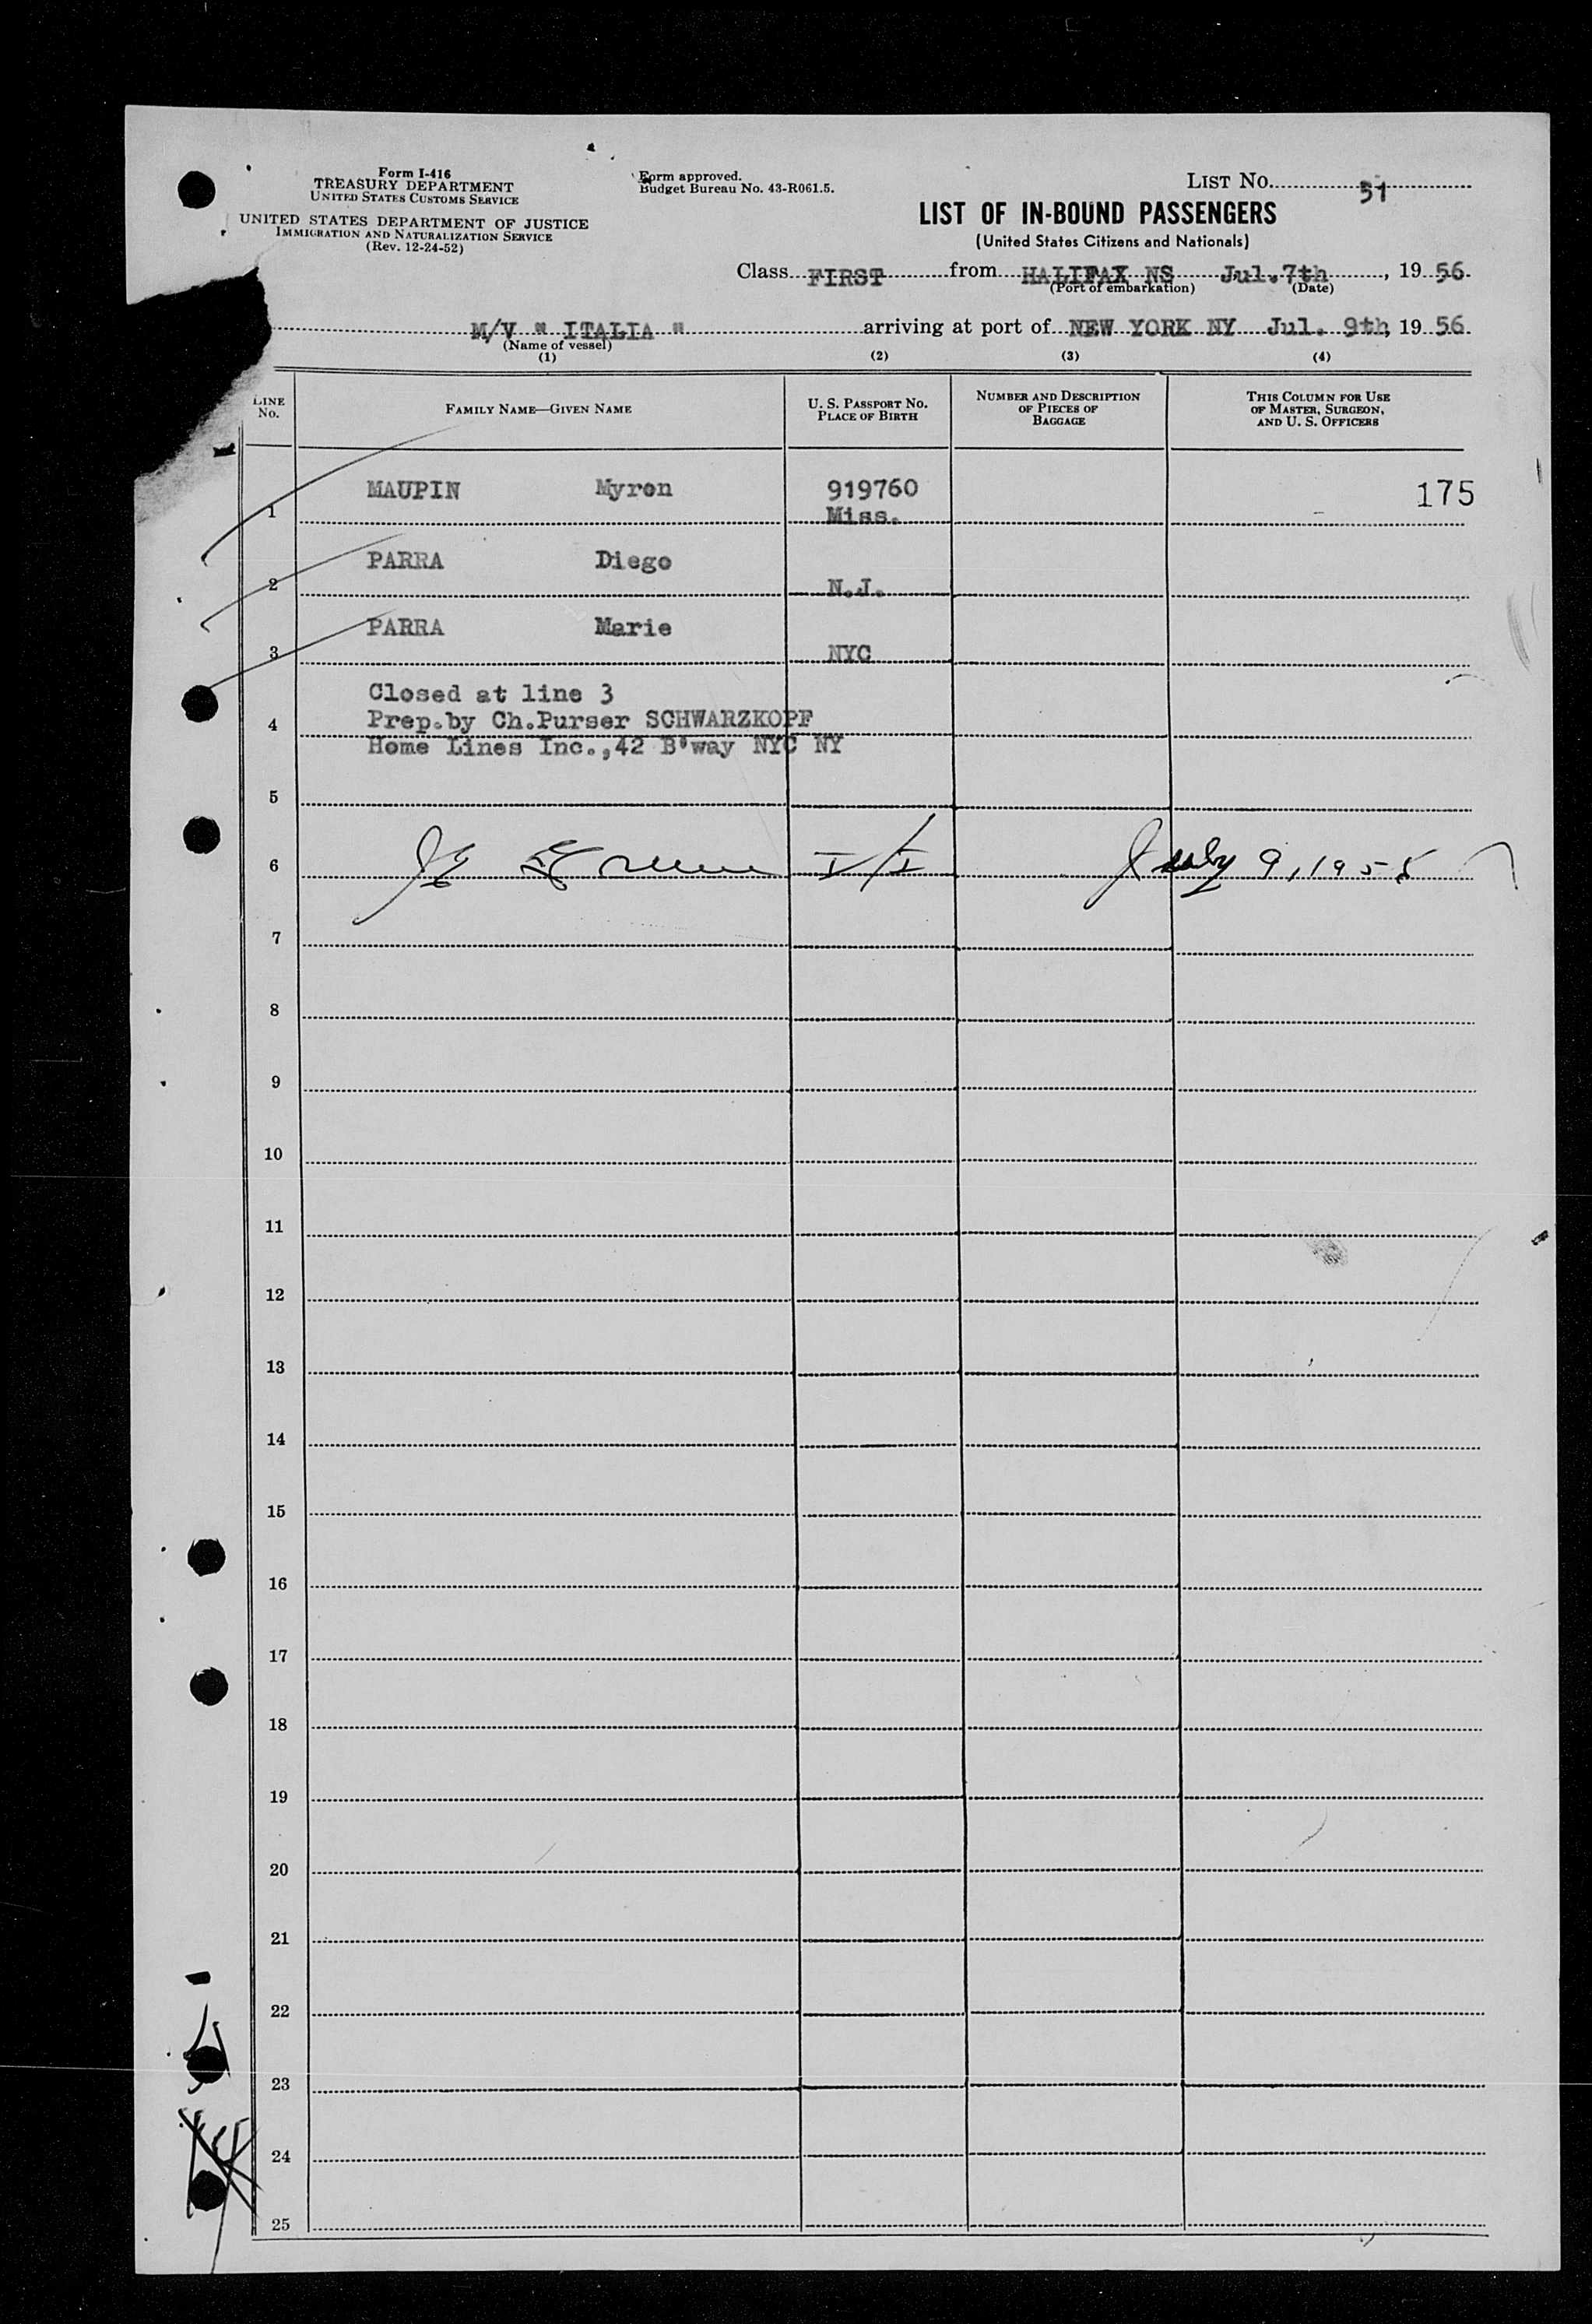 Form I-416
TREASURY DEPARTMENT
UNITED STATES CUSTOMS SERVICE
UNITED STATES DEPARTMENT OF JUSTICE
IMMIGRATION AND NATURALIZATION SERVICE
(Rev. 12-24-52)
Form approved.
Budget Bureau No. 43-R061.5.
LIST No. 51
LIST OF IN-BOUND PASSENGERS
(United States Citizens and Nationals)
Class FIRST from HALIFAX NS Jul.7th, 19 56
(Port of embarkation) (Date)
M/V " ITALIA " arriving at port of NEW YORK NY Jul. 9th, 19 56
(Name of vessel)
(1) (2) (3) (4)
LINE No. FAMILY NAME—GIVEN NAME U. S. PASSPORT NO. PLACE OF BIRTH NUMBER AND DESCRIPTION OF PIECES OF BAGGAGE THIS COLUMN FOR USE OF MASTER, SURGEON, AND U. S. OFFICERS
MAUPIN Myron 919760 175
1 Miss.
PARRA Diego
2 N.J.
PARRA Marie
3 NYC
Closed at line 3
4 Prep.by Ch.Purser SCHWARZKOPF
Home Lines Inc.,42 B'way NYC NY
5
6 I/I July 9, 1955
7
8
9
10
11
12
13
14
15
16
17
18
19
20
21
22
23
24
25